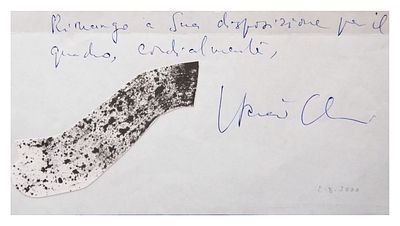 Rimango a Sua disposizione per il
quadro, cordialmente,